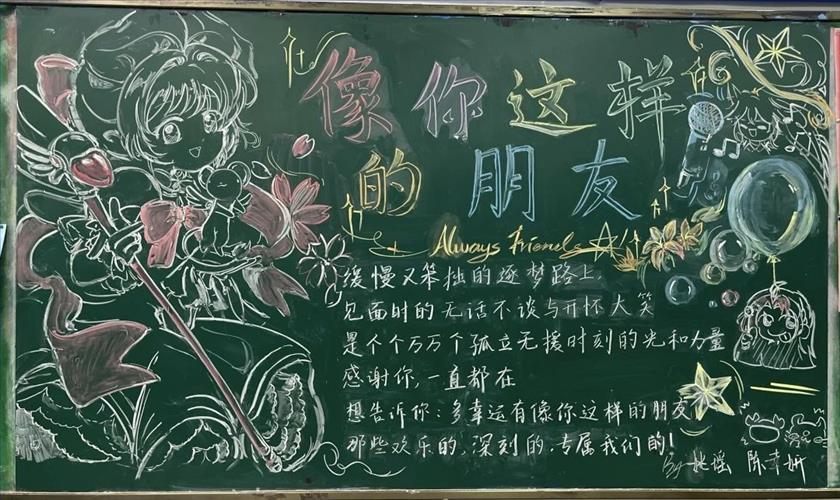 像你这样
的朋友
Always Friends
缓慢又笨拙的逐梦路上,
见面时的无话不谈与开怀大笑
是个个万万个孤立无援时刻的光和力量
感谢你,一直都在
想告诉你:多幸运有像你这样的朋友,
那些欢乐的,深刻的,专属我们的!
by 姚瑶 陈幸妍